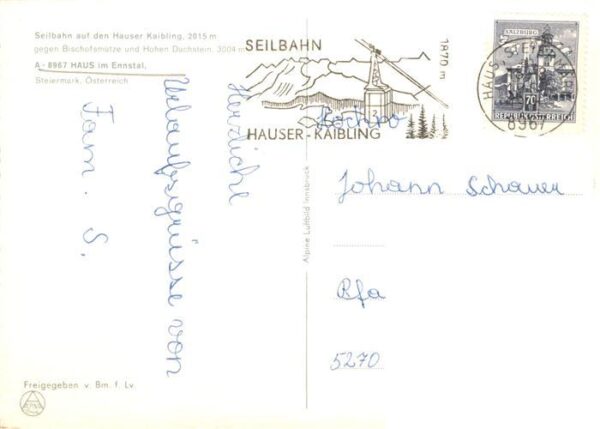 Seilbahn auf den Hauser Kaibling, 2015 m
gegen Bischofsmütze und Hohen Dachstein, 3004 m
A - 8967 HAUS im Ennstal,
Steiermark, Österreich
Herzliche
Urlaubsgrüsse von
Fam. S.
Freigegeben v. Bm. f. Lv.
Alpine Luftbild Innsbruck
SEILBAHN
1870 m
2
HAUSER-KAIBLING
SALZBURG
70
REPUBLIK ÖSTERREICH
8967
Johann Schauer
Rfa
5270